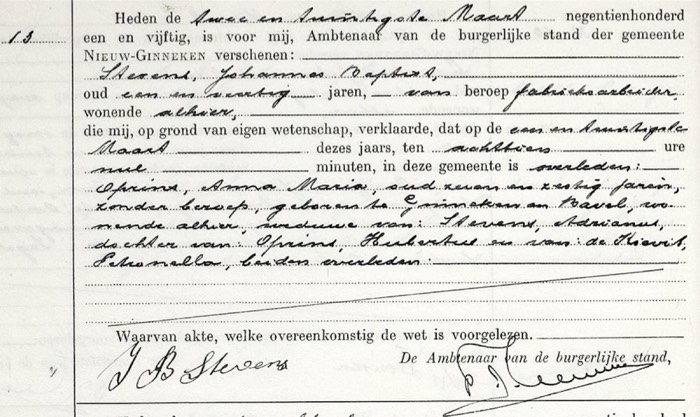 Heden de twee en twintigste Maart negentienhonderd
13. een en vijftig, is voor mij, Ambtenaar van de burgerlijke stand der gemeente
NIEUW-GINNEKEN verschenen:
Stevens, Johannes Baptist,
oud een en veertig jaren, van beroep fabrieksarbeider
wonende alhier,
die mij, op grond van eigen wetenschap, verklaarde, dat op de een en twintigste
Maart dezes jaars, ten achttien ure
nul minuten, in deze gemeente is overleden:
Oprins, Anna Maria, oud zeven en zestig jaren,
zonder beroep, geboren te Ginneken en Bavel, wo-
nende alhier, weduwe van: Stevens, Adrianus,
dochter van: Oprins, Hubertus en van: de Kievit,
Petronella, beiden overleden.
Waarvan akte, welke overeenkomstig de wet is voorgelezen.
J B Stevens
De Ambtenaar van de burgerlijke stand,